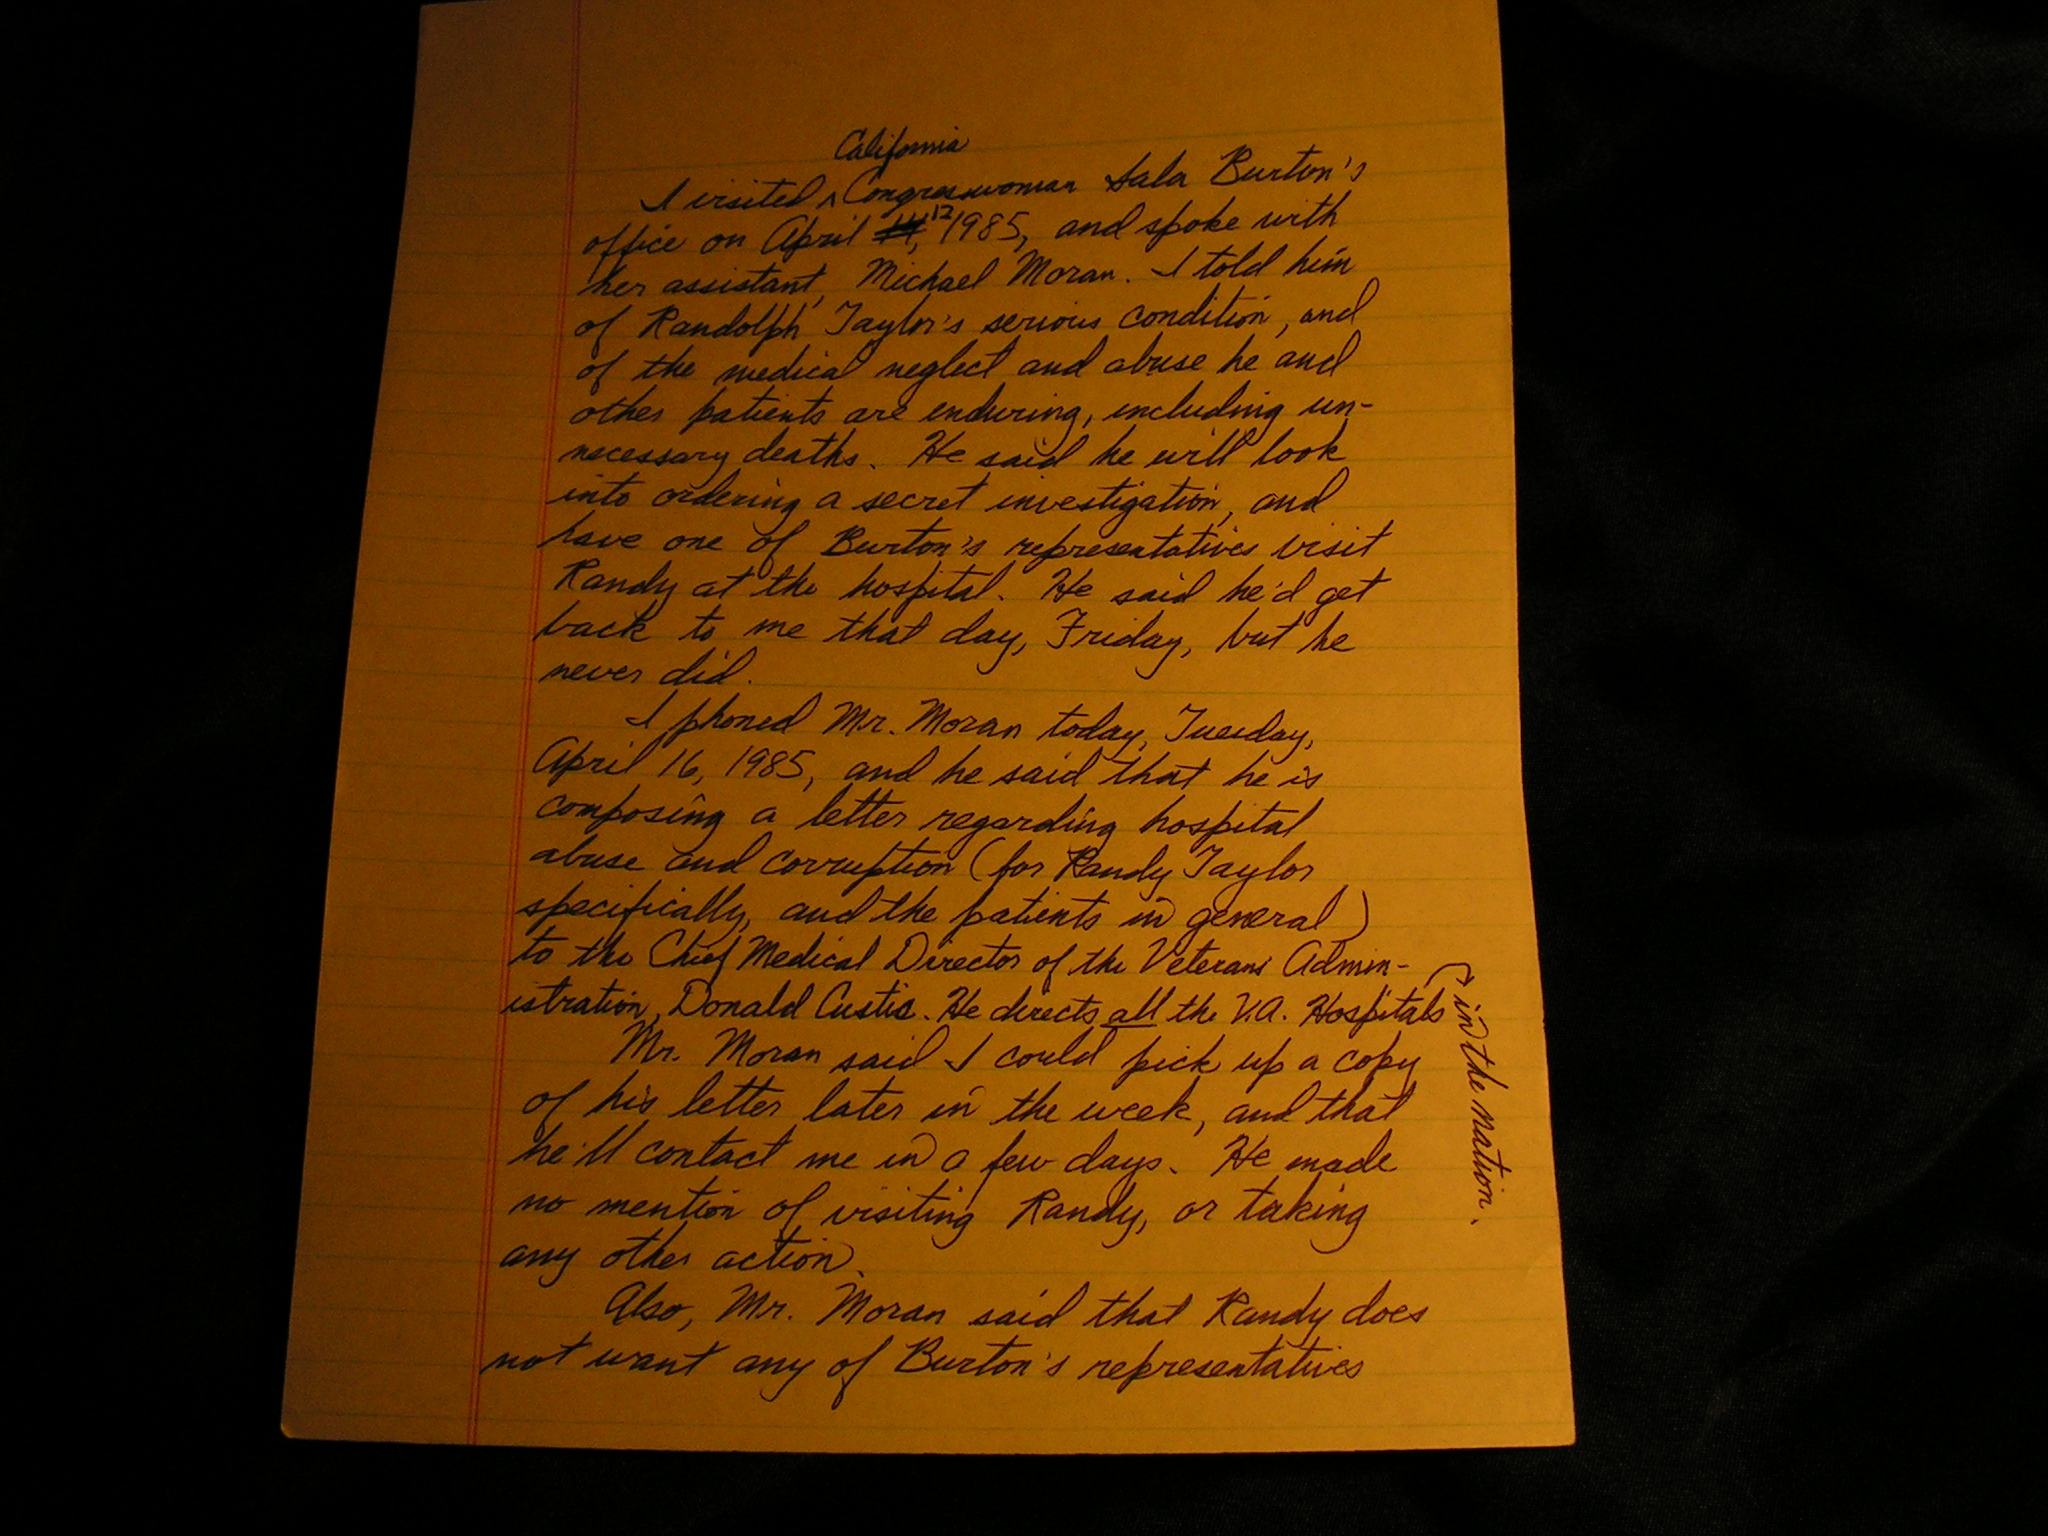 California
I visited ^ Congresswoman Sala Burton's
office on April 12, 1985, and spoke with
her assistant, Michael Moran. I told him
of Randolph Taylor's serious condition, and
of the medical neglect and abuse he and
other patients are enduring, including un-
necessary deaths. He said he will look
into ordering a secret investigation, and
have one of Burton's representatives visit
Randy at the hospital. He said he'd get
back to me that day, Friday, but he
never did.
I phoned Mr. Moran today, Tuesday,
April 16, 1985, and he said that he is
composing a letter regarding hospital
abuse and corruption (for Randy Taylor
specifically, and the patients in general)
to the Chief Medical Director of the Veterans Admin-
istration, Donald Custis. He directs all the V.A. Hospitals
in the nation.
Mr. Moran said I could pick up a copy
of his letter later in the week, and that
he'll contact me in a few days. He made
no mention of visiting Randy, or taking
any other action.
Also, Mr. Moran said that Randy does
not want any of Burton's representatives